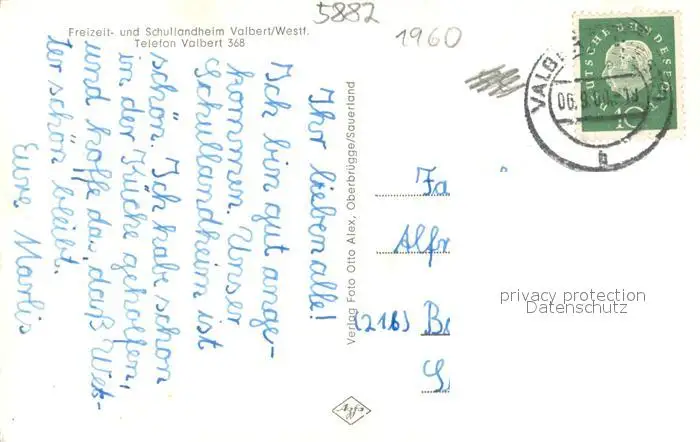 5882
1960
Freizeit- und Schullandheim Valbert/Westf.
Telefon Valbert 368
Ihr lieben alle!
Ich bin gut ange-
kommen. Unser
Schullandheim ist
schön. Ich habe schon
in der Küche geholfen,
und hoffe das, daß Wet-
ter schön bleibt.
Eure Marlis
Verlag Foto Otto Alex, Oberbrügge/Sauerland
DEUTSCHE BUNDESPOST
10
VALB
06.8.60
b
Fa
Alfr
(216) B
Agfa
privacy protection
Datenschutz